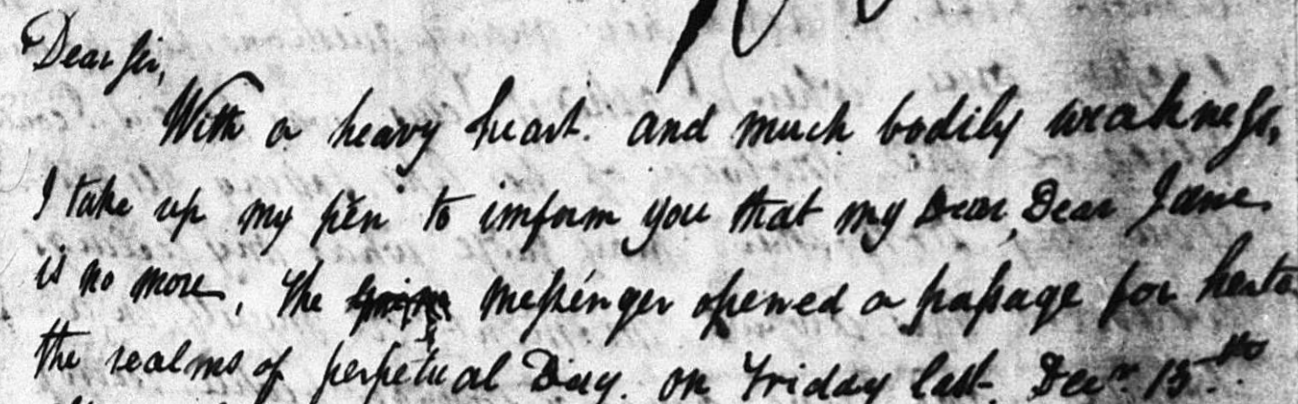 Dear Sir,
With a heavy heart. and much bodily weakness,
I take up my pen to imform you that my Dear, Dear Jane
is no more, The messenger opened a passage for her to
the realms of perpetual Day. on Friday last. Decr. 15th